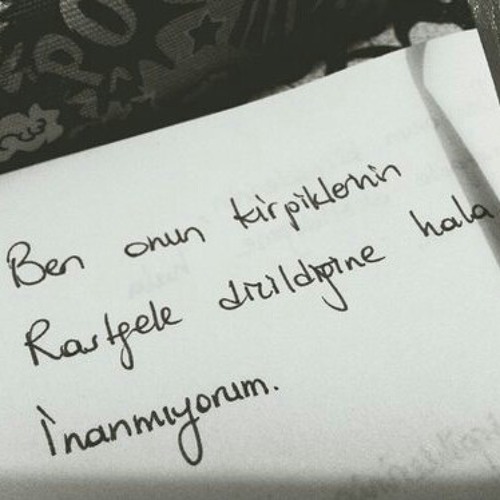 Ben onun kirpiklerinin
Rastgele dizildiğine hala
İnanmıyorum.